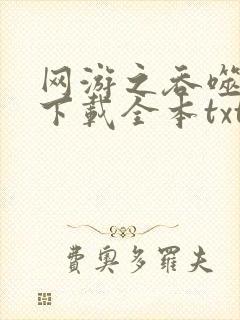 网游之吞噬
下载全本txt
费奥多罗夫